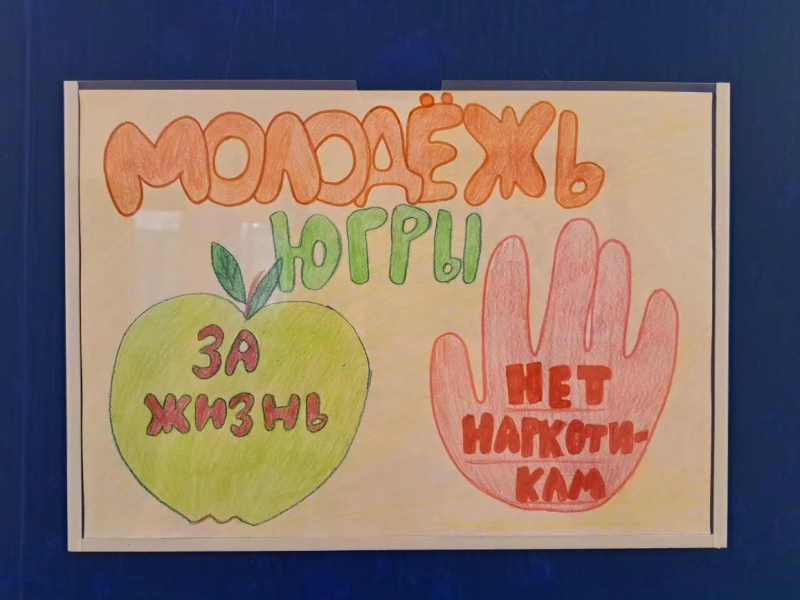 МОЛОДЁЖЬ
ЮГРЫ
ЗА
ЖИЗНЬ
НЕТ
НАРКОТИ-
КАМ